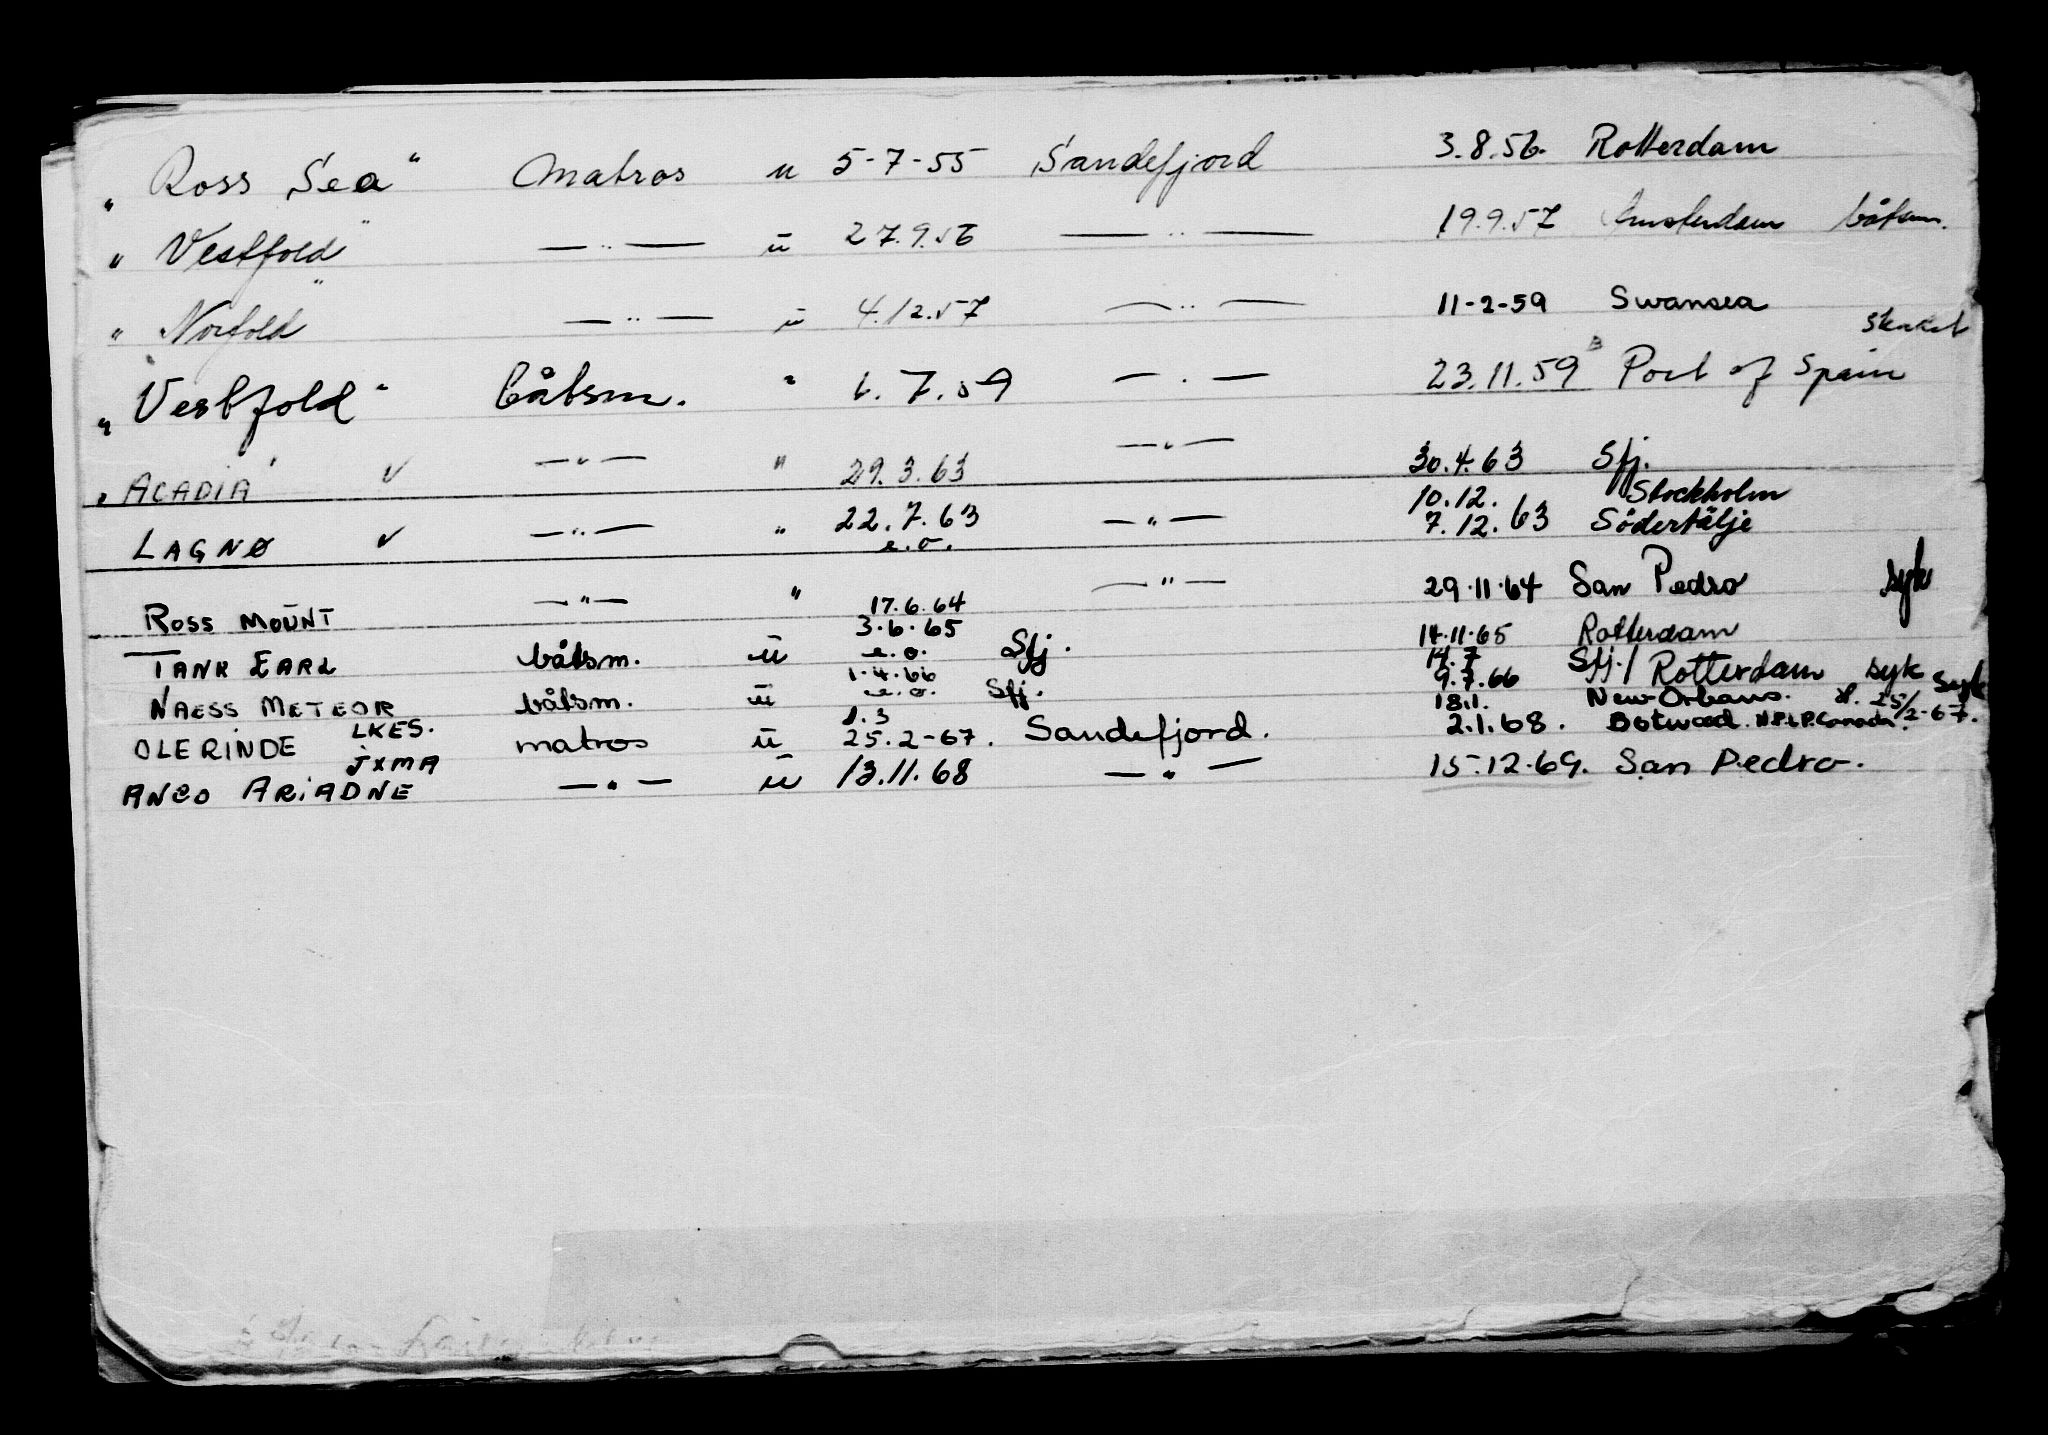 „ Ross Sea " matros u 5-7-55 Sandefjord 3.8.56. Rotterdam
„ Vestfold " — " — u 27.9.56 — " — 19.9.57 Amsterdam båtsm.
„ Norfold " — " — u 4.12.57 — " — 11-2-59 Swansea
„ Vestfold " båtsm. " 1.7.59 — " — 23.11.59 Port of Spain skadet
„ ACADIA ' ✓ — " — " 29.3.63 — " — 30.4.63 Sfj.
10.12. Stockholm
LAGNØ ✓ — " — " 22.7.63 — " — 7.12.63 Södertälje
e.o.
ROSS MOUNT — " — " 17.6.64 — " — 29.11.64 San Pedro syk
3.6.65
TANK EARL båtsm. u e.o. Sfj. 14.11.65 Rotterdam
1.4.66 14.7 Sfj./
NAESS METEOR båtsm. u e.o. Sfj. 9.7.66 Rotterdam syk
LKES. 1.3 18.1. New Orleans. 25/2-67. syk
OLERINDE matros u 25.2-67. Sandefjord. 2.1.68. Botwood. Canada.
JXMA
ANCO ARIADNE — " — u 13.11.68 — " — 15.12.69. San Pedro.